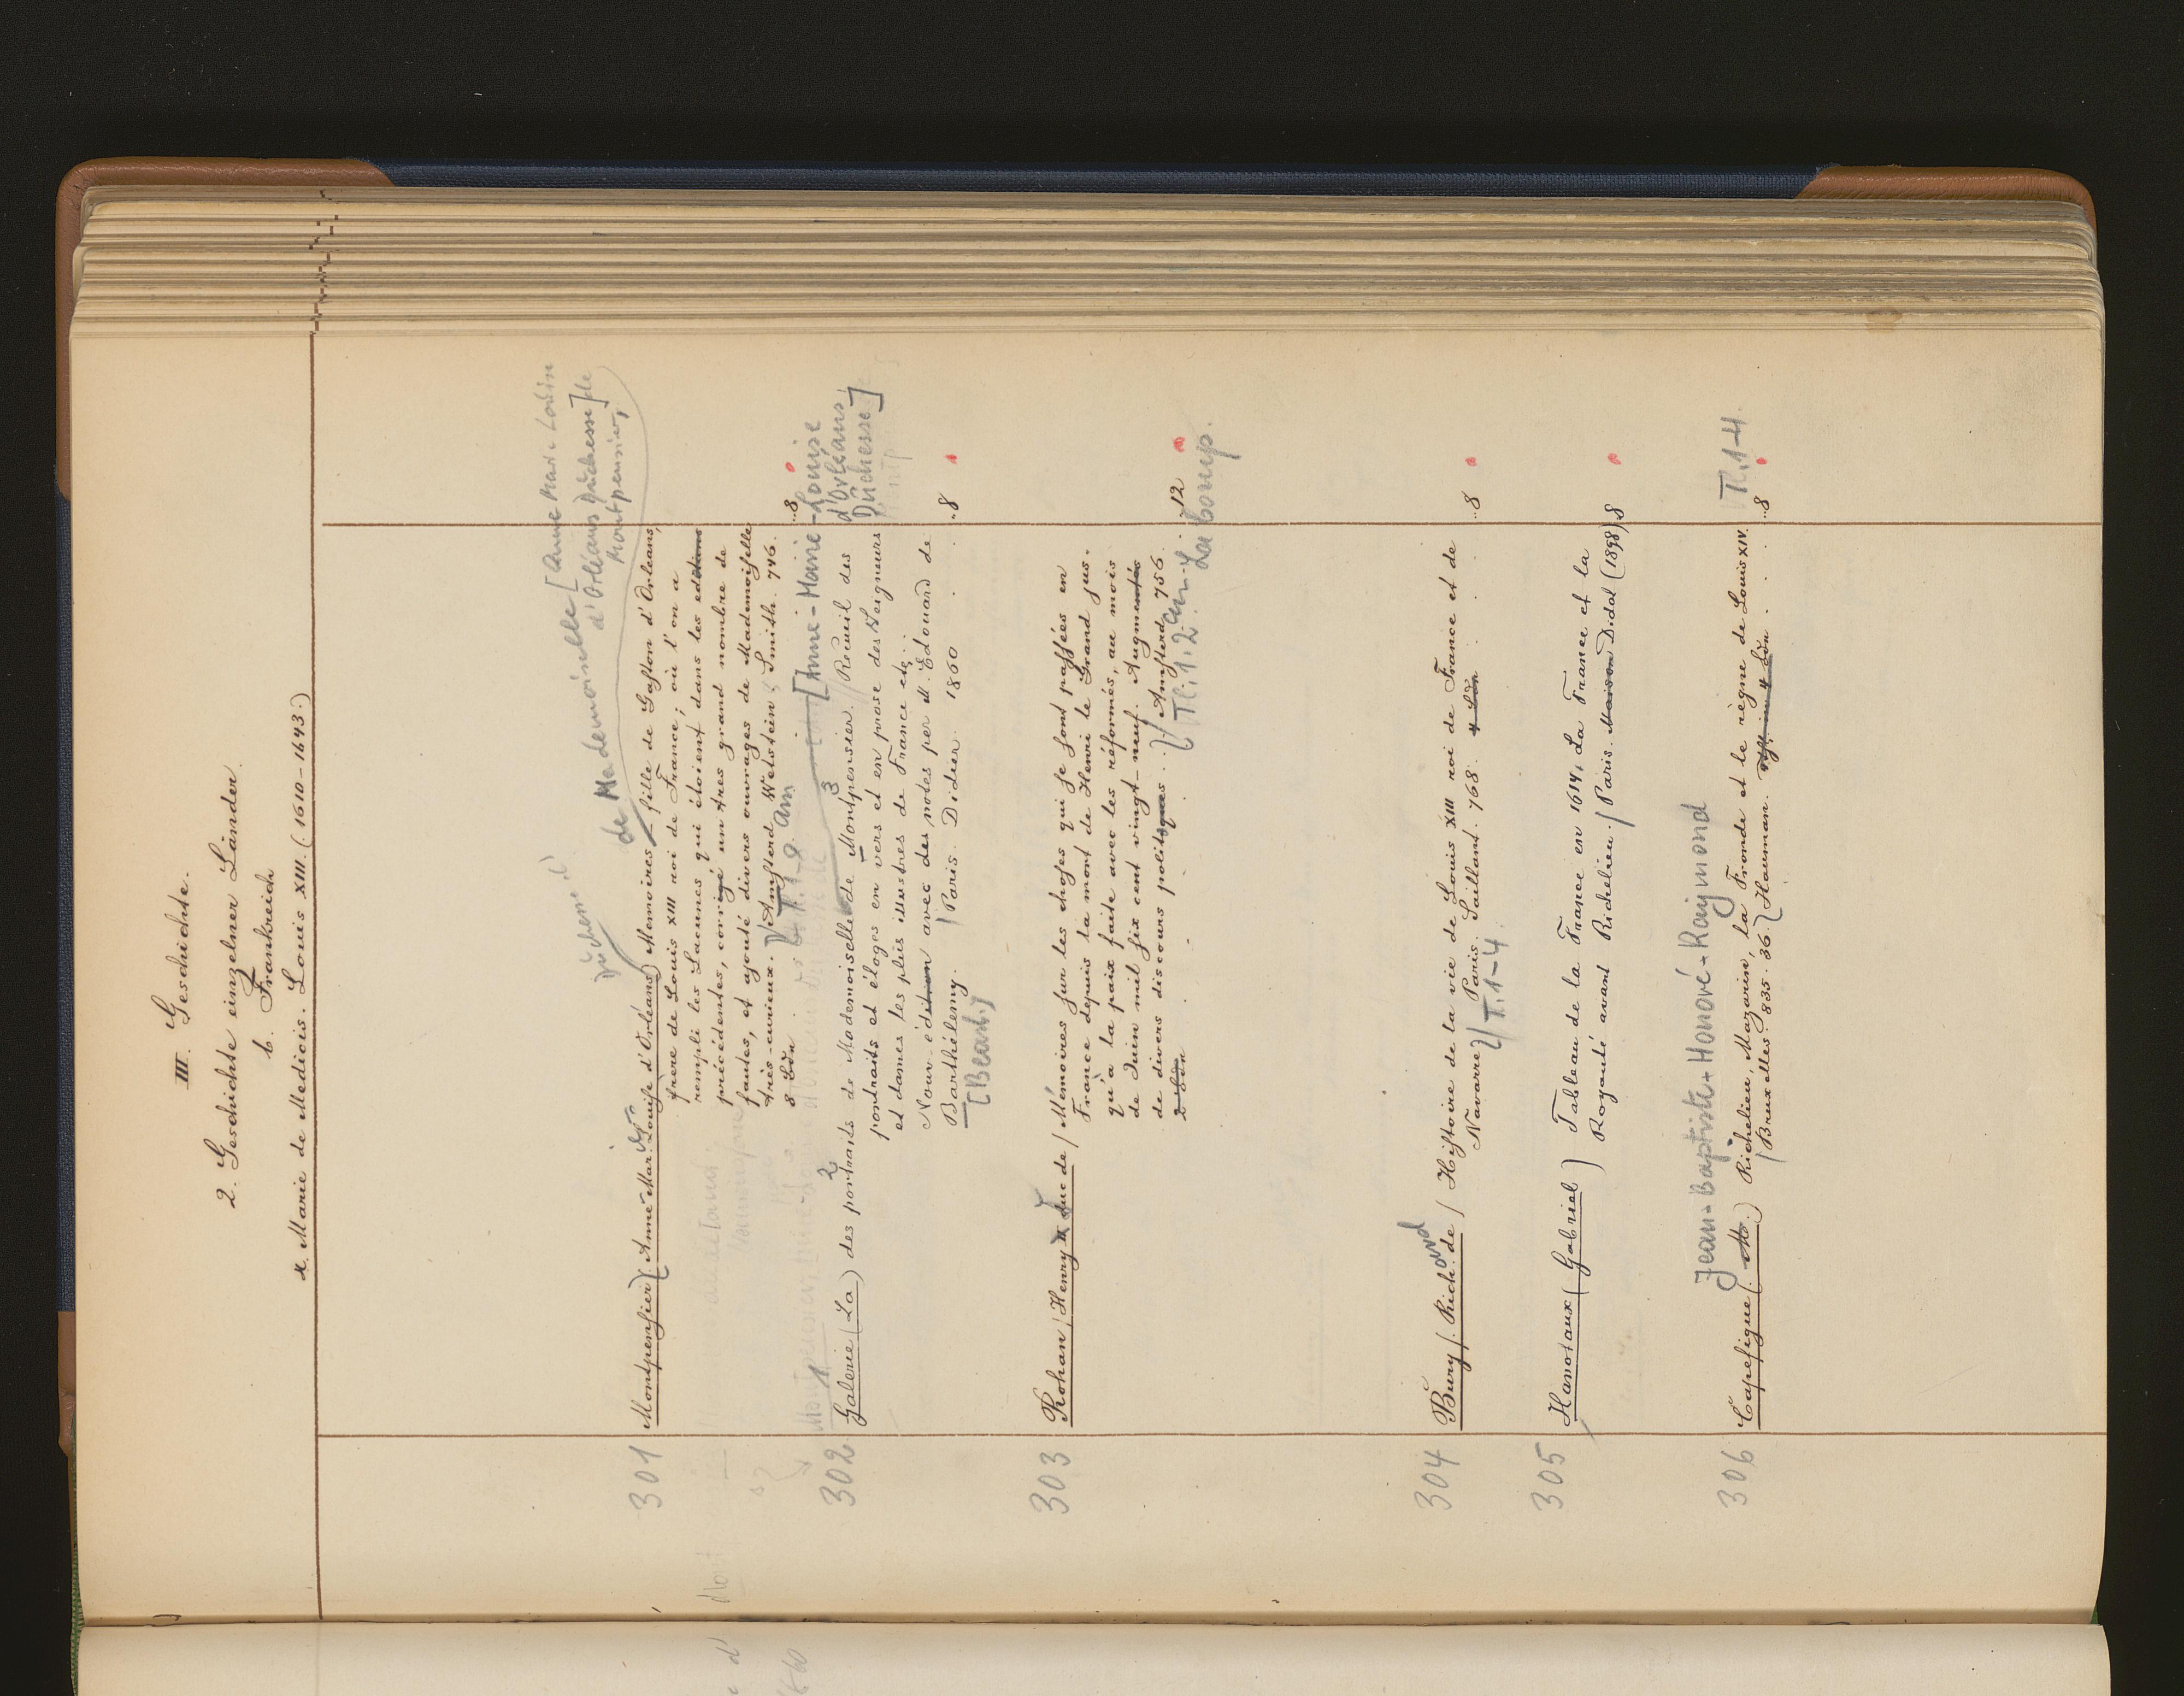 III. Geschichte.
2. Geschichte einzelner Länder.
b. Frankreich
x. Marie de Medicis. Louis XIII. (1610-1643.)
[Anne Marie Louise
d'Orléans Duchesse] de
Montpensier,
de Mademoiselle
301 Montpensier (Anne-Mar. Louise d'Orléans) Memoires fille de Gaston d'Orleans,
frere de Louis XIII roi de France; où l'on a
rempli les Lacunes qui étoient dans les editions
précédentes, corrigé un tres grand nombre de
fautes, et ajouté divers ouvrages de Mademoiselle
très-curieux. Amsterd. Wetstein & Smith. 746. 8
8 Bde T. 1-8. am
[Anne-Marie-Louise
d'Orléans,
Duchesse]
302 Galerie (La) des portraits de Mademoiselle de Montpensier. Recueil des
portraits et éloges en vers et en prose des Seigneurs
et dames les plus illustres de France etc.
Nouv. édition avec des notes per M. Edouard de
Barthélemy. Paris. Didier. 1860 8
[Bearb.]
303 Rohan, Henry II duc de / Mémoires sur les choses qui se sont passées en
France depuis la mort de Henri le Grand jus-
qu'à la paix faite avec les réformés, au mois
de Juin mil six cent vingt-neuf. Augmentés
de divers discours politiques. Amsterd. 756. 12
2 Bde Tl. 1. 2. an: La Comp.
304 Bury (Richard de / Histoire de la vie de Louis XIII roi de France et de
Navarre Paris. Saillant. 768. 4 Bde 8
T. 1-4
305 Hanotaux (Gabriel) Tableau de la France en 1614, La France et la
Royauté avant Richelieu. Paris. Maison Didot (1898) 8
Jean-Baptiste-Honoré-Raymond Tl. 1-4.
306 Capefigue (M.) Richelieu, Mazarin, la Fronde et le règne de Louis XIV.
Bruxelles. 835. 36. Hauman. 4 Bde 8